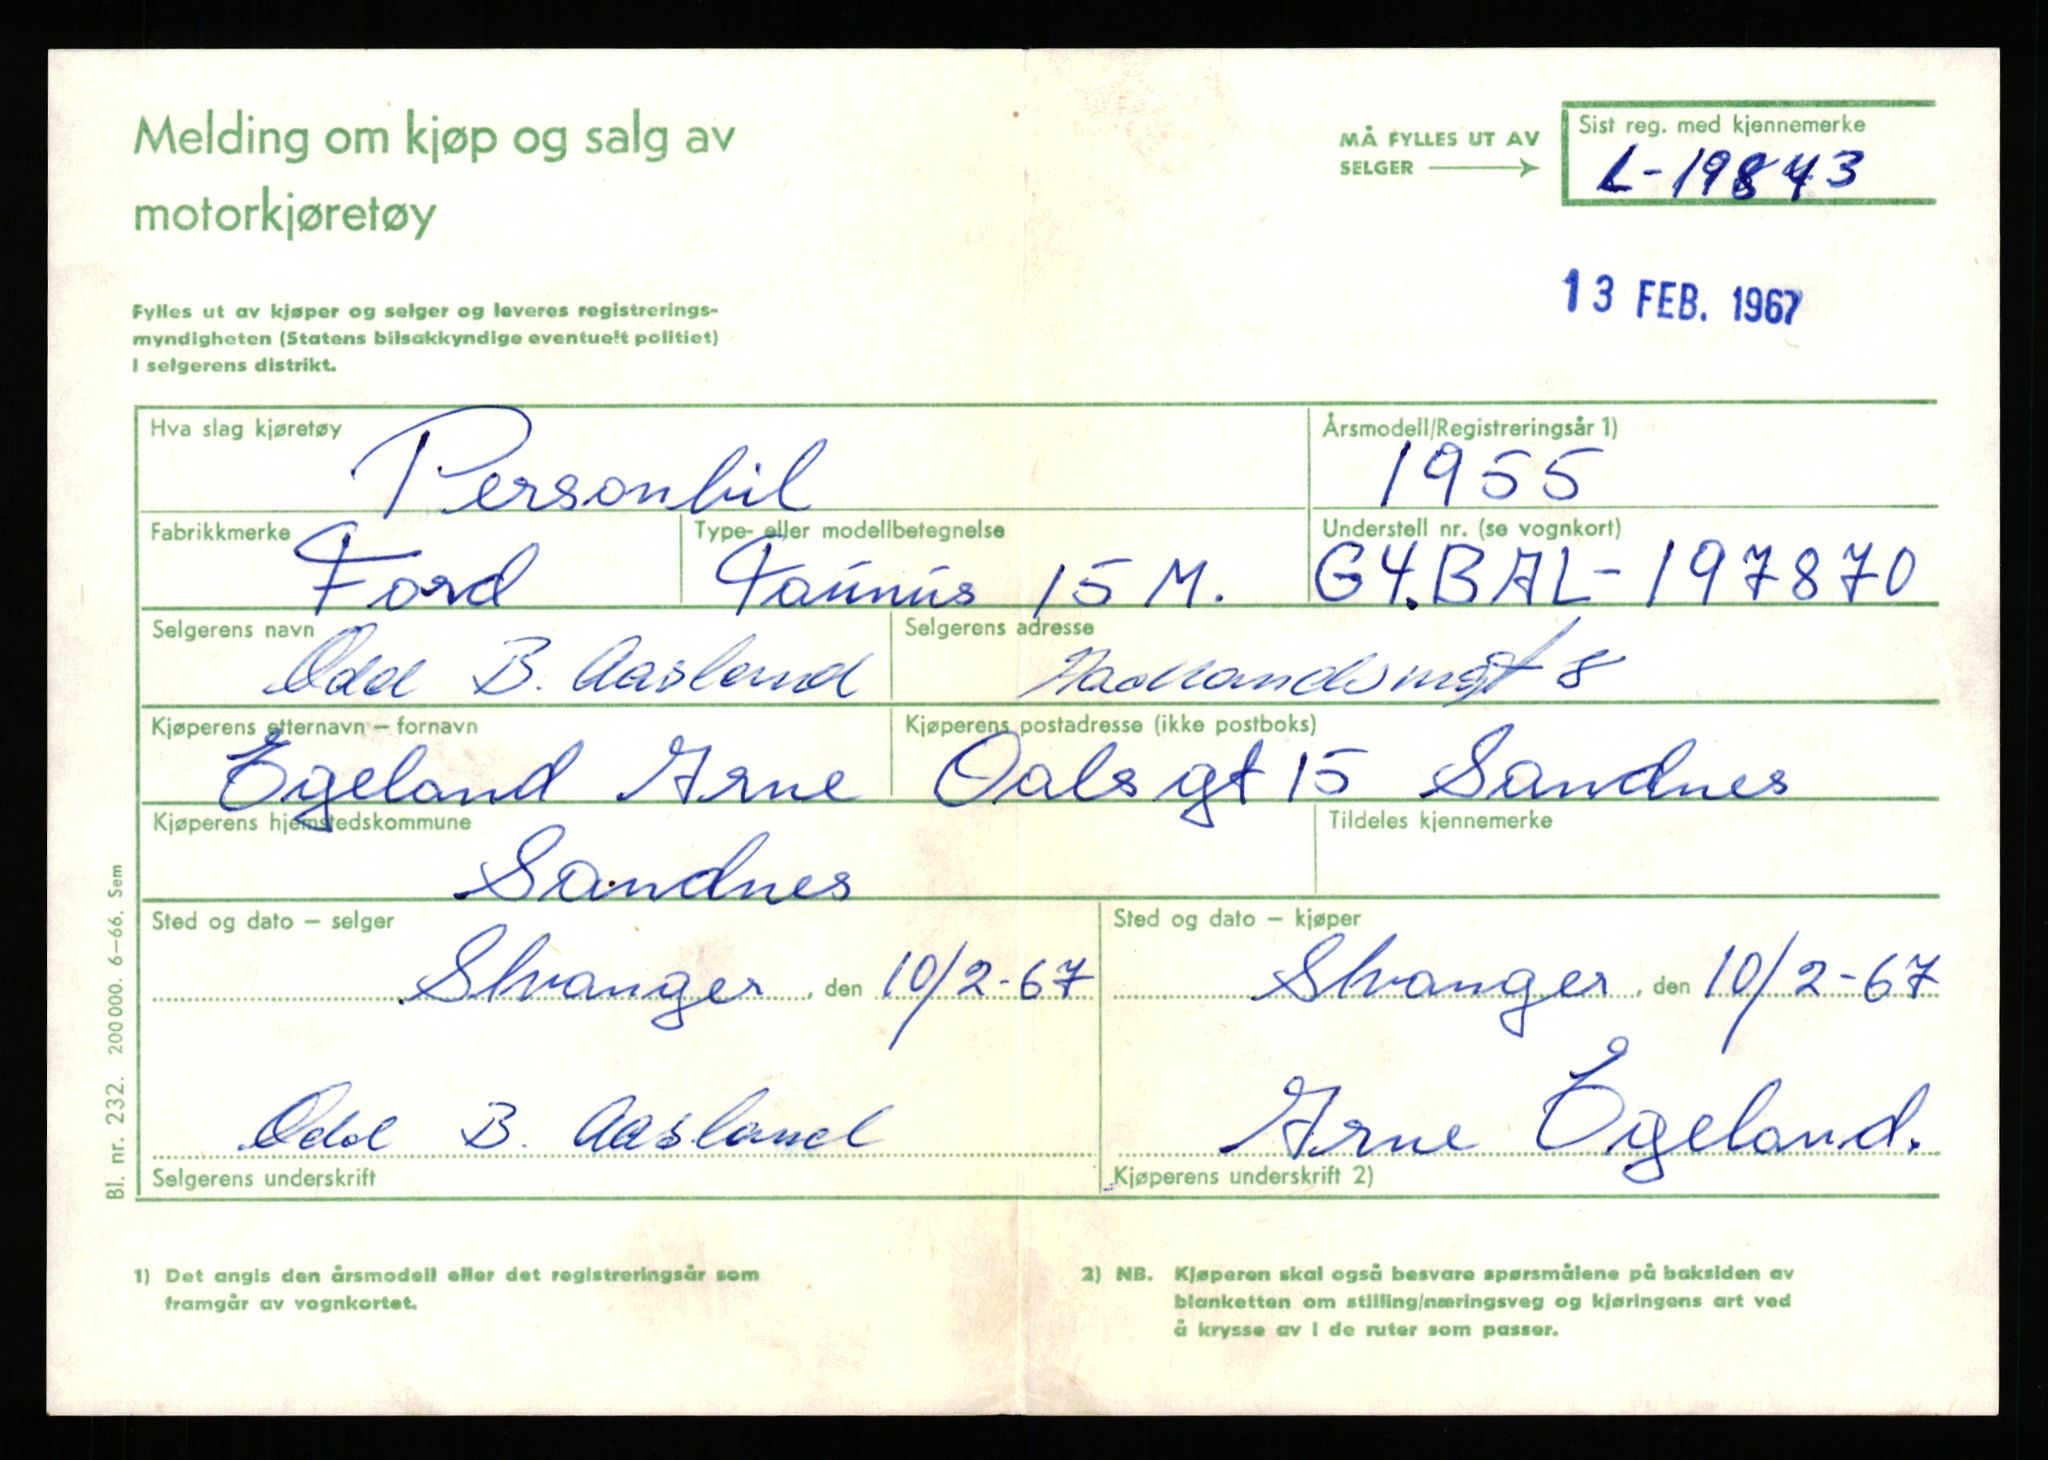 Melding om kjøp og salg av
motorkjøretøy
MÅ FYLLES UT AV
SELGER
Sist reg. med kjennemerke
L-19843
13 FEB. 1967
Fylles ut av kjøper og selger og leveres registrerings-
myndigheten (Statens bilsakkyndige eventuelt politiet)
i selgerens distrikt.
Hva slag kjøretøy
Personbil
Årsmodell/Registreringsår 1)
1955
Fabrikkmerke
Ford
Type- eller modellbetegnelse
Taunus 15 M.
Understell nr. (se vognkort)
G4.BAL-197870
Selgerens navn
Odd B. Aasland
Selgerens adresse
8
Kjøperens etternavn – fornavn
Egeland Arne
Kjøperens postadresse (ikke postboks)
Oalsgt 15 Sandnes
Kjøperens hjemstedskommune
Sandnes
Tildeles kjennemerke
Sted og dato – selger
Stvanger, den 10/2-67
Sted og dato – kjøper
Stvanger, den 10/2-67
Odd B. Aasland
Selgerens underskrift
Arne Egeland.
Kjøperens underskrift 2)
Bl. nr. 232. 200 000. 6–66. Sem
1) Det angis den årsmodell eller det registreringsår som
framgår av vognkortet.
2) NB. Kjøperen skal også besvare spørsmålene på baksiden av
blanketten om stilling/næringsveg og kjøringens art ved
å krysse av i de ruter som passer.